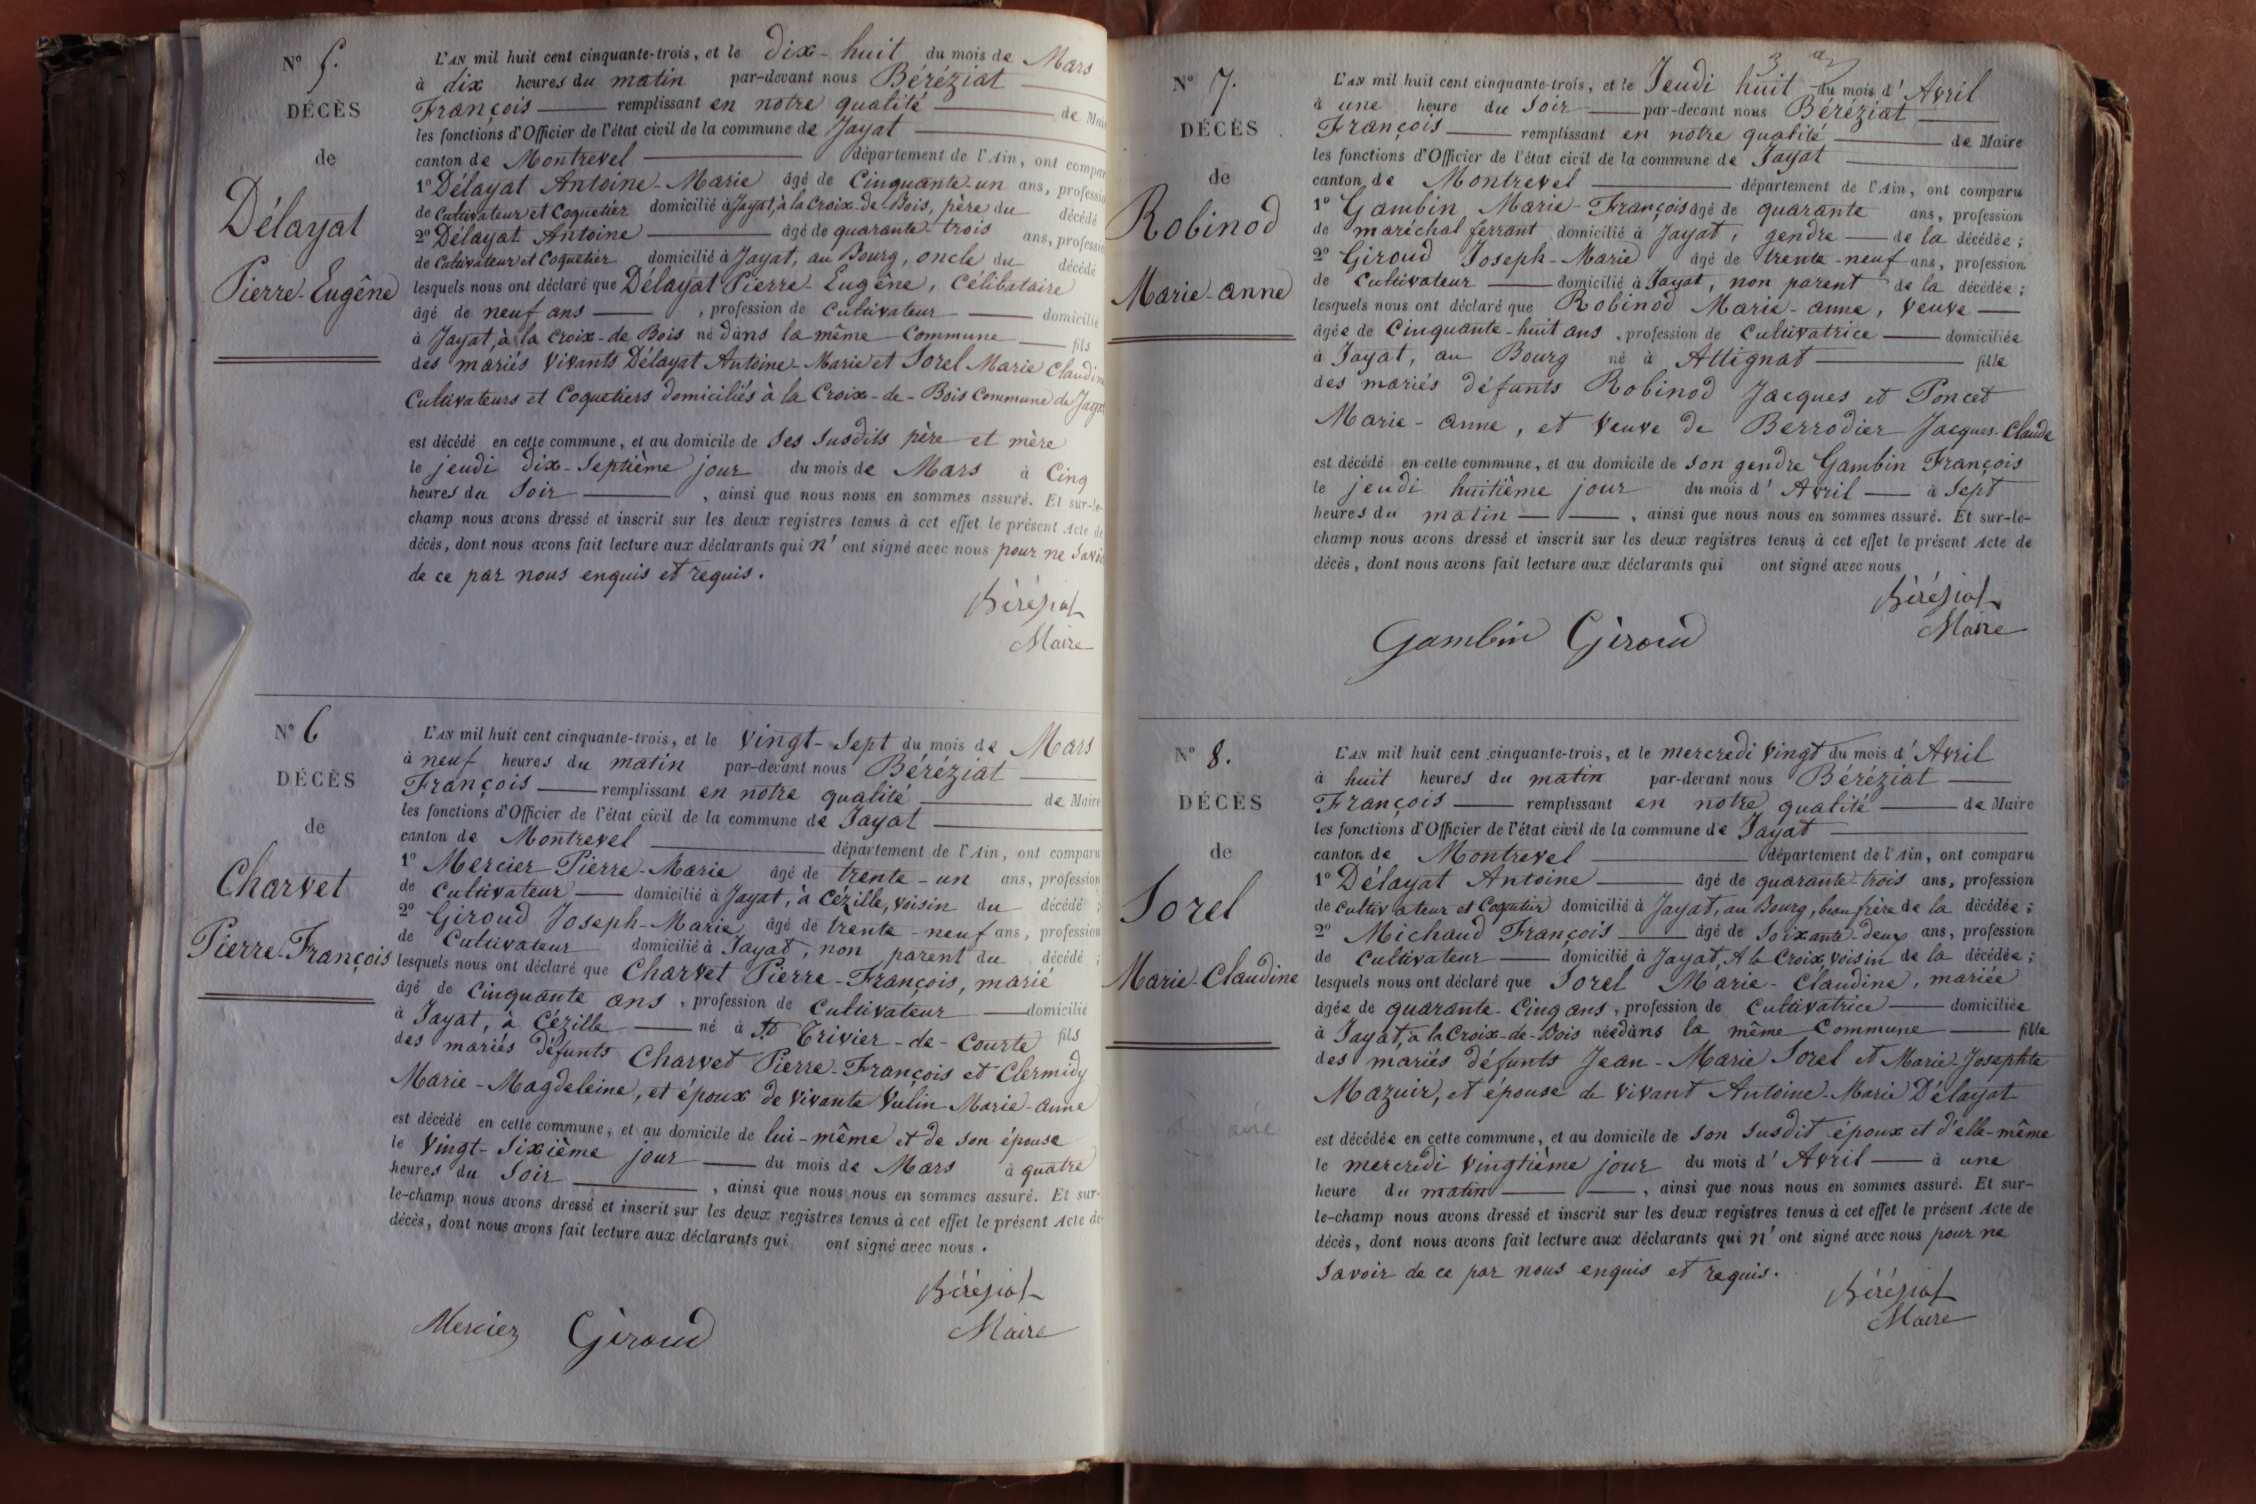 N° 5.
DÉCÈS
de
Délayat
Pierre-Eugêne
L'AN mil huit cent cinquante-trois, et le dix-huit du mois de Mars
à dix heures du matin par-devant nous Béréziat
François remplissant en notre qualité de Mai
les fonctions d'Officier de l'état civil de la commune de Jayat
canton de Montrevel département de l'Ain, ont compar
1° Délayat Antoine-Marie âgé de Cinquante-un ans, professio
de Cultivateur et Coquetier domicilié à Jayat, à la Croix-de-Bois, père du décédé
2° Délayat Antoine âgé de quarante-trois ans, professio
de Cultivateur et Coquetier domicilié à Jayat, au Bourg, oncle du décédé
lesquels nous ont déclaré que Délayat Pierre-Eugêne, Célibataire
âgé de neuf ans , profession de Cultivateur domicilié
à Jayat, à la Croix-de Bois né dans la même Commune fils
des mariés vivants Délayat Antoine-Marie et Sorel Marie Claudine
Cultivateurs et Coquetiers domiciliés à la Croix-de-Bois Commune de Jayat
est décédé en cette commune, et au domicile de ses susdits père et mère
le jeudi dix-septième jour du mois de Mars à Cinq
heures du Soir , ainsi que nous nous en sommes assuré. Et sur-le-
champ nous avons dressé et inscrit sur les deux registres tenus à cet effet le présent Acte de
décès, dont nous avons fait lecture aux déclarants qui n' ont signé avec nous pour ne savoir
de ce par nous enquis et requis.
Béréziat
Maire
N° 6
DÉCÈS
de
Charvet
Pierre-François
L'AN mil huit cent cinquante-trois, et le vingt-sept du mois de Mars
à neuf heures du matin par-devant nous Béréziat
François remplissant en notre qualité de Maire
les fonctions d'Officier de l'état civil de la commune de Jayat
canton de Montrevel département de l'Ain, ont comparu
1° Mercier Pierre-Marie âgé de trente-un ans, profession
de Cultivateur domicilié à Jayat, à Cézille, voisin du décédé ;
2° Giroud Joseph-Marie âgé de trente-neuf ans, profession
de Cultivateur domicilié à Jayat, non parent du décédé ;
lesquels nous ont déclaré que Charvet Pierre-François, marié
âgé de Cinquante ans , profession de Cultivateur domicilié
à Jayat, à Cézille né à St Trivier-de-Courte fils
des mariés défunts Charvet Pierre-François et Clermidy
Marie-Magdeleine, et époux de vivante Vulin Marie-anne
est décédé en cette commune, et au domicile de lui-même et de son épouse
le vingt-sixième jour du mois de Mars à quatre
heures du Soir , ainsi que nous nous en sommes assuré. Et sur-
le-champ nous avons dressé et inscrit sur les deux registres tenus à cet effet le présent Acte de
décès, dont nous avons fait lecture aux déclarants qui ont signé avec nous .
Béréziat
Maire
Mercier Giroud
3
N° 7.
DÉCÈS
de
Robinod
Marie-anne
L'AN mil huit cent cinquante-trois, et le Jeudi huit du mois d' Avril
à une heure du Soir par-devant nous Béréziat
François remplissant en notre qualité de Maire
les fonctions d'Officier de l'état civil de la commune de Jayat
canton de Montrevel département de l'Ain, ont comparu
1° Gambin Marie-François âgé de quarante ans, profession
de maréchal ferrant domicilié à Jayat, gendre de la décédée ;
2° Giroud Joseph-Marie âgé de trente-neuf ans, profession
de Cultivateur domicilié à Jayat, non parent de la décédée ;
lesquels nous ont déclaré que Robinod Marie-anne, veuve
âgée de Cinquante-huit ans , profession de Cultivatrice domiciliée
à Jayat, au Bourg né à Attignat fille
des mariés défunts Robinod Jacques et Poncet
Marie-anne, et veuve de Berrodier Jacques-Claude
est décédé en cette commune, et au domicile de son gendre Gambin François
le jeudi huitième jour du mois d' Avril à Sept
heures du matin , ainsi que nous nous en sommes assuré. Et sur-le-
champ nous avons dressé et inscrit sur les deux registres tenus à cet effet le présent Acte de
décès, dont nous avons fait lecture aux déclarants qui ont signé avec nous
Béréziat
Maire
Gambin Giroud
N° 8.
DÉCÈS
de
Sorel
Marie-Claudine
L'AN mil huit cent cinquante-trois, et le mercredi vingt du mois d' Avril
à huit heures du matin par-devant nous Béréziat
François remplissant en notre qualité de Maire
les fonctions d'Officier de l'état civil de la commune de Jayat
canton de Montrevel département de l'Ain, ont comparu
1° Délayat Antoine âgé de quarante-trois ans, profession
de Cultivateur et Coquetier domicilié à Jayat, au Bourg, beau frère de la décédée ;
2° Michaud François âgé de Soixante-deux ans, profession
de Cultivateur domicilié à Jayat, A la Croix, voisin de la décédée ;
lesquels nous ont déclaré que Sorel Marie-Claudine, mariée
âgée de quarante-Cinq ans , profession de Cultivatrice domiciliée
à Jayat, à la Croix-de-Bois née dans la même Commune fille
des mariés défunts Jean-Marie Sorel et Marie-Josephte
Mazuir, et épouse de vivant Antoine-Marie Délayat
est décédée en cette commune, et au domicile de son susdit époux et d'elle-même
le mercredi vingtième jour du mois d' Avril à une
heure du matin , ainsi que nous nous en sommes assuré. Et sur-
le-champ nous avons dressé et inscrit sur les deux registres tenus à cet effet le présent Acte de
décès, dont nous avons fait lecture aux déclarants qui n' ont signé avec nous pour ne
savoir de ce par nous enquis et requis.
Béréziat
Maire